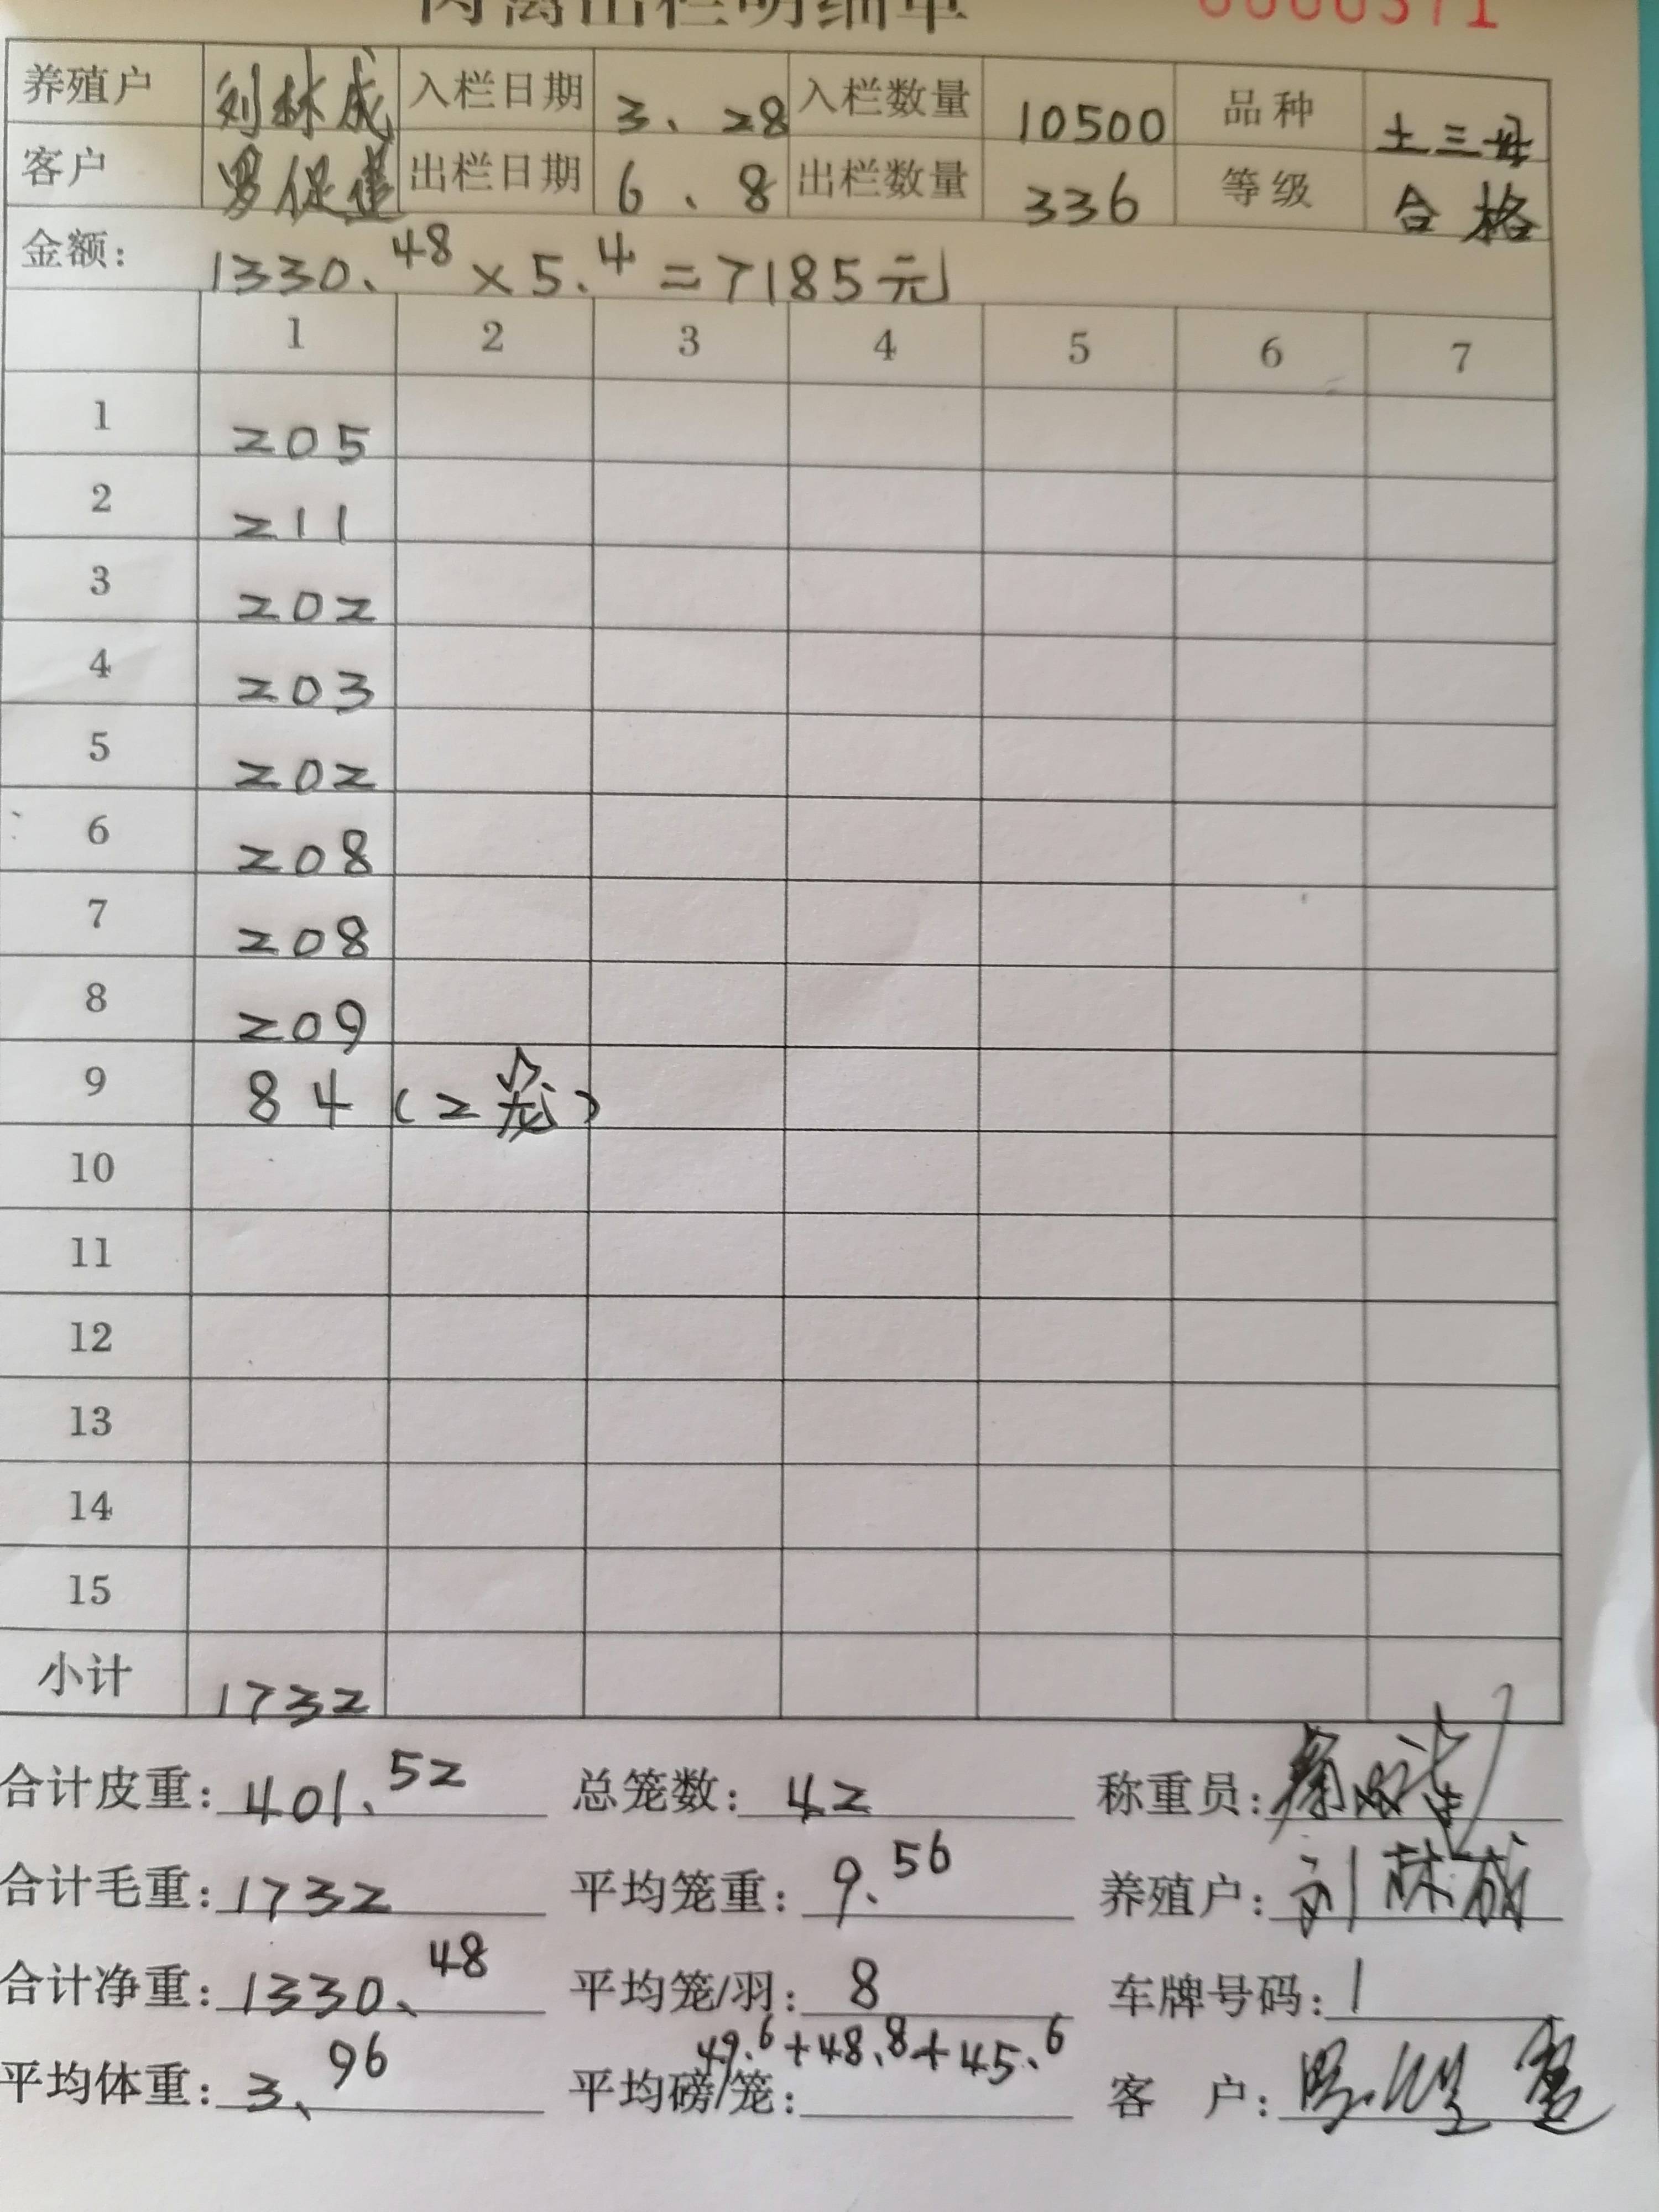 肉禽出栏明细单 0000371
养殖户 刘林成 入栏日期 3.28 入栏数量 10500 品种 土三母
客户 罗促进 出栏日期 6.8 出栏数量 336 等级 合格
金额: 1330.48×5.4=7185元
1 2 3 4 5 6 7
1 205
2 211
3 202
4 203
5 202
6 208
7 208
8 209
9 84 (2笼)
10
11
12
13
14
15
小计 1732
合计皮重: 401.52 总笼数: 42 称重员:
合计毛重: 1732 平均笼重: 9.56 养殖户: 刘林成
合计净重: 1330.48 平均笼/羽: 8 车牌号码: 1
平均体重: 3.96 平均磅/笼: 49.6+48.8+45.6 客 户: